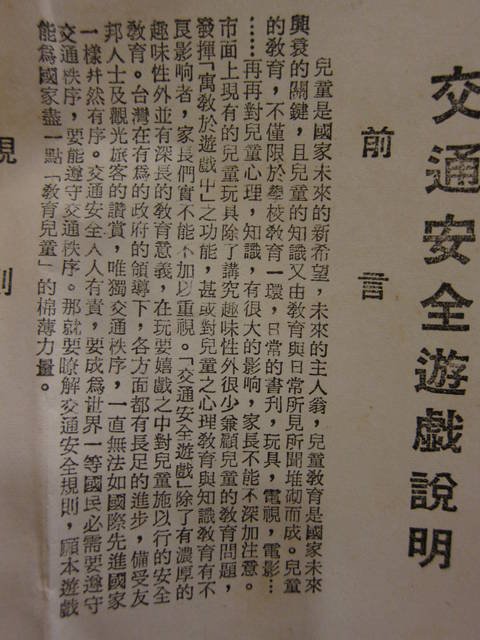 交通安全遊戲說明
前言
兒童是國家未來的新希望，未來的主人翁，兒童教育是國家未來
興衰的關鍵，且兒童的知識又由教育與日常所見所聞堆砌而成。兒童
的教育，不僅限於學校教育一環，日常的書刊，玩具，電視，電影…
……再再對兒童心理，知識，有很大的影響，家長不能不深加注意。
市面上現有的兒童玩具除了講究趣味性外很少兼顧兒童的教育問題，
發揮「寓教於遊戲中」之功能，甚或對兒童之心理教育與知識教育有不
良影响者，家長們實不能不加以重視。「交通安全遊戲」除了有濃厚的
趣味性外並有深長的教育意義，在玩耍嬉戲之中對兒童施以行的安全
教育。台灣在有為的政府的領導下，各方面都有長足的進步，備受友
邦人士及觀光旅客的讚賞，唯獨交通秩序，一直無法如國際先進國家
一樣井然有序。交通安全人人有責，要成為世界一等國民必需要遵守
交通秩序，要能遵守交通秩序。那就要瞭解交通安全規則，願本遊戲
能為國家盡一點「教育兒童」的棉薄力量。
規則